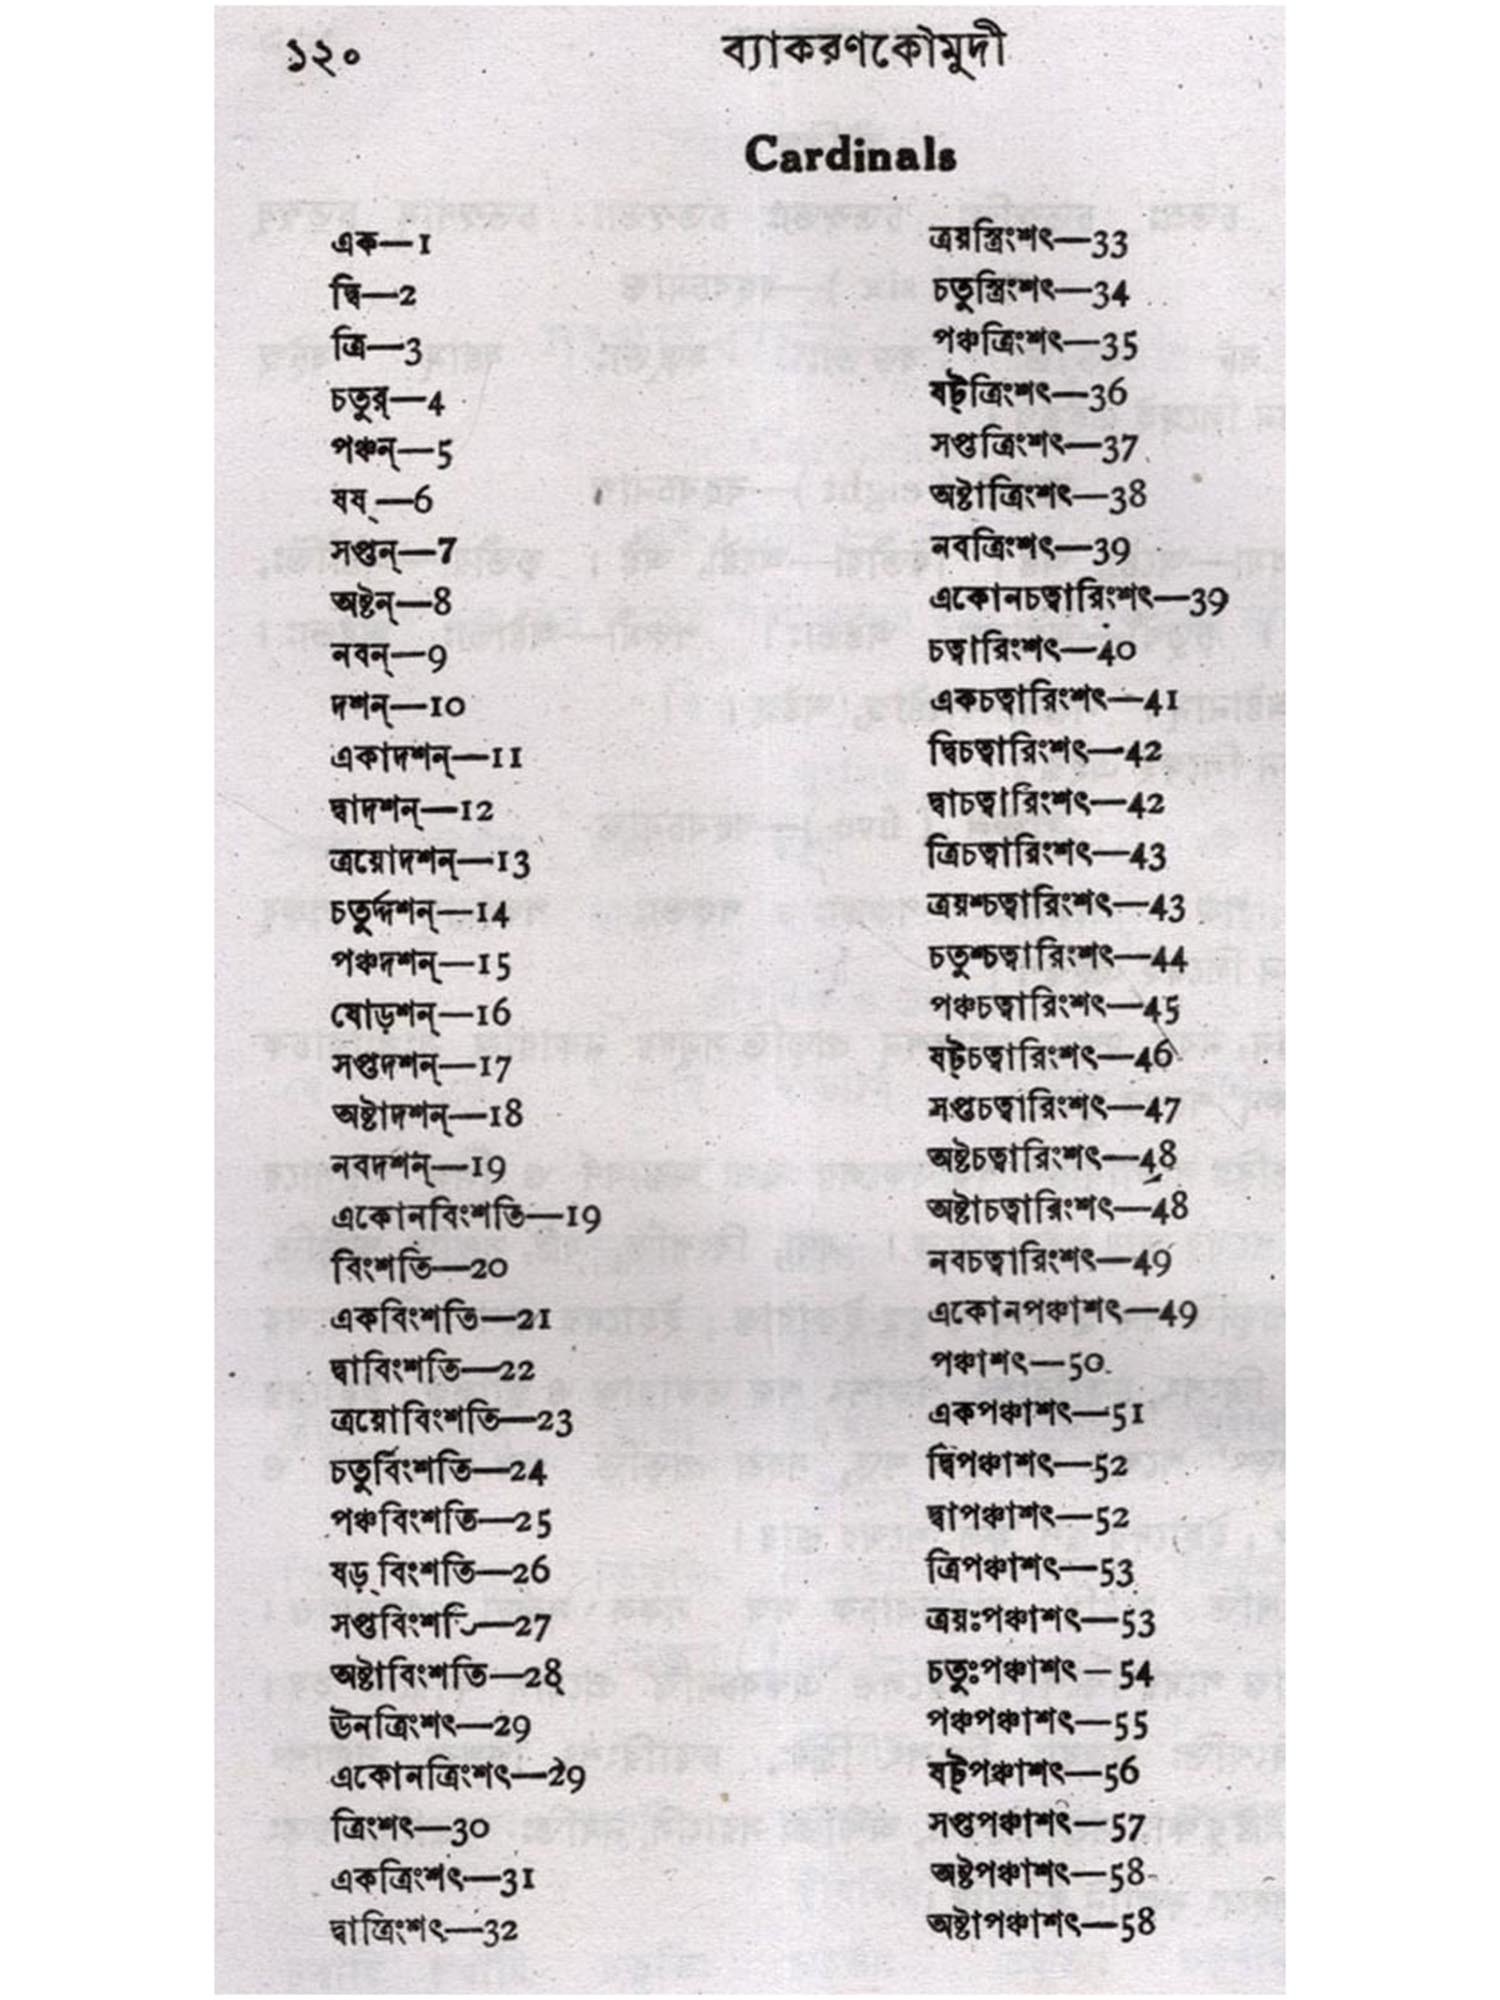 ১২০ ব্যাকরণকৌমুদী
Cardinals
এক—1
দ্বি—2
ত্রি—3
চতুর্—4
পঞ্চন্—5
ষষ্—6
সপ্তন্—7
অষ্টন্—8
নবন্—9
দশন্—10
একাদশন্—11
দ্বাদশন্—12
ত্রয়োদশন্—13
চতুর্দ্দশন্—14
পঞ্চদশন্—15
ষোড়শন্—16
সপ্তদশন্—17
অষ্টাদশন্—18
নবদশন্—19
একোনবিংশতি—19
বিংশতি—20
একবিংশতি—21
দ্বাবিংশতি—22
ত্রয়োবিংশতি—23
চতুর্বিংশতি—24
পঞ্চবিংশতি—25
ষড়্‌বিংশতি—26
সপ্তবিংশতি—27
অষ্টাবিংশতি—28
ঊনত্রিংশৎ—29
একোনত্রিংশৎ—29
ত্রিংশৎ—30
একত্রিংশৎ—31
দ্বাত্রিংশৎ—32
ত্রয়স্ত্রিংশৎ—33
চতুস্ত্রিংশৎ—34
পঞ্চত্রিংশৎ—35
ষট্‌ত্রিংশৎ—36
সপ্তত্রিংশৎ—37
অষ্টাত্রিংশৎ—38
নবত্রিংশৎ—39
একোনচত্বারিংশৎ—39
চত্বারিংশৎ—40
একচত্বারিংশৎ—41
দ্বিচত্বারিংশৎ—42
দ্বাচত্বারিংশৎ—42
ত্রিচত্বারিংশৎ—43
ত্রয়শ্চত্বারিংশৎ—43
চতুশ্চত্বারিংশৎ—44
পঞ্চচত্বারিংশৎ—45
ষট্‌চত্বারিংশৎ—46
সপ্তচত্বারিংশৎ—47
অষ্টচত্বারিংশৎ—48
অষ্টাচত্বারিংশৎ—48
নবচত্বারিংশৎ—49
একোনপঞ্চাশৎ—49
পঞ্চাশৎ—50
একপঞ্চাশৎ—51
দ্বিপঞ্চাশৎ—52
দ্বাপঞ্চাশৎ—52
ত্রিপঞ্চাশৎ—53
ত্রয়ঃপঞ্চাশৎ—53
চতুঃপঞ্চাশৎ—54
পঞ্চপঞ্চাশৎ—55
ষট্‌পঞ্চাশৎ—56
সপ্তপঞ্চাশৎ—57
অষ্টপঞ্চাশৎ—58
অষ্টাপঞ্চাশৎ—58